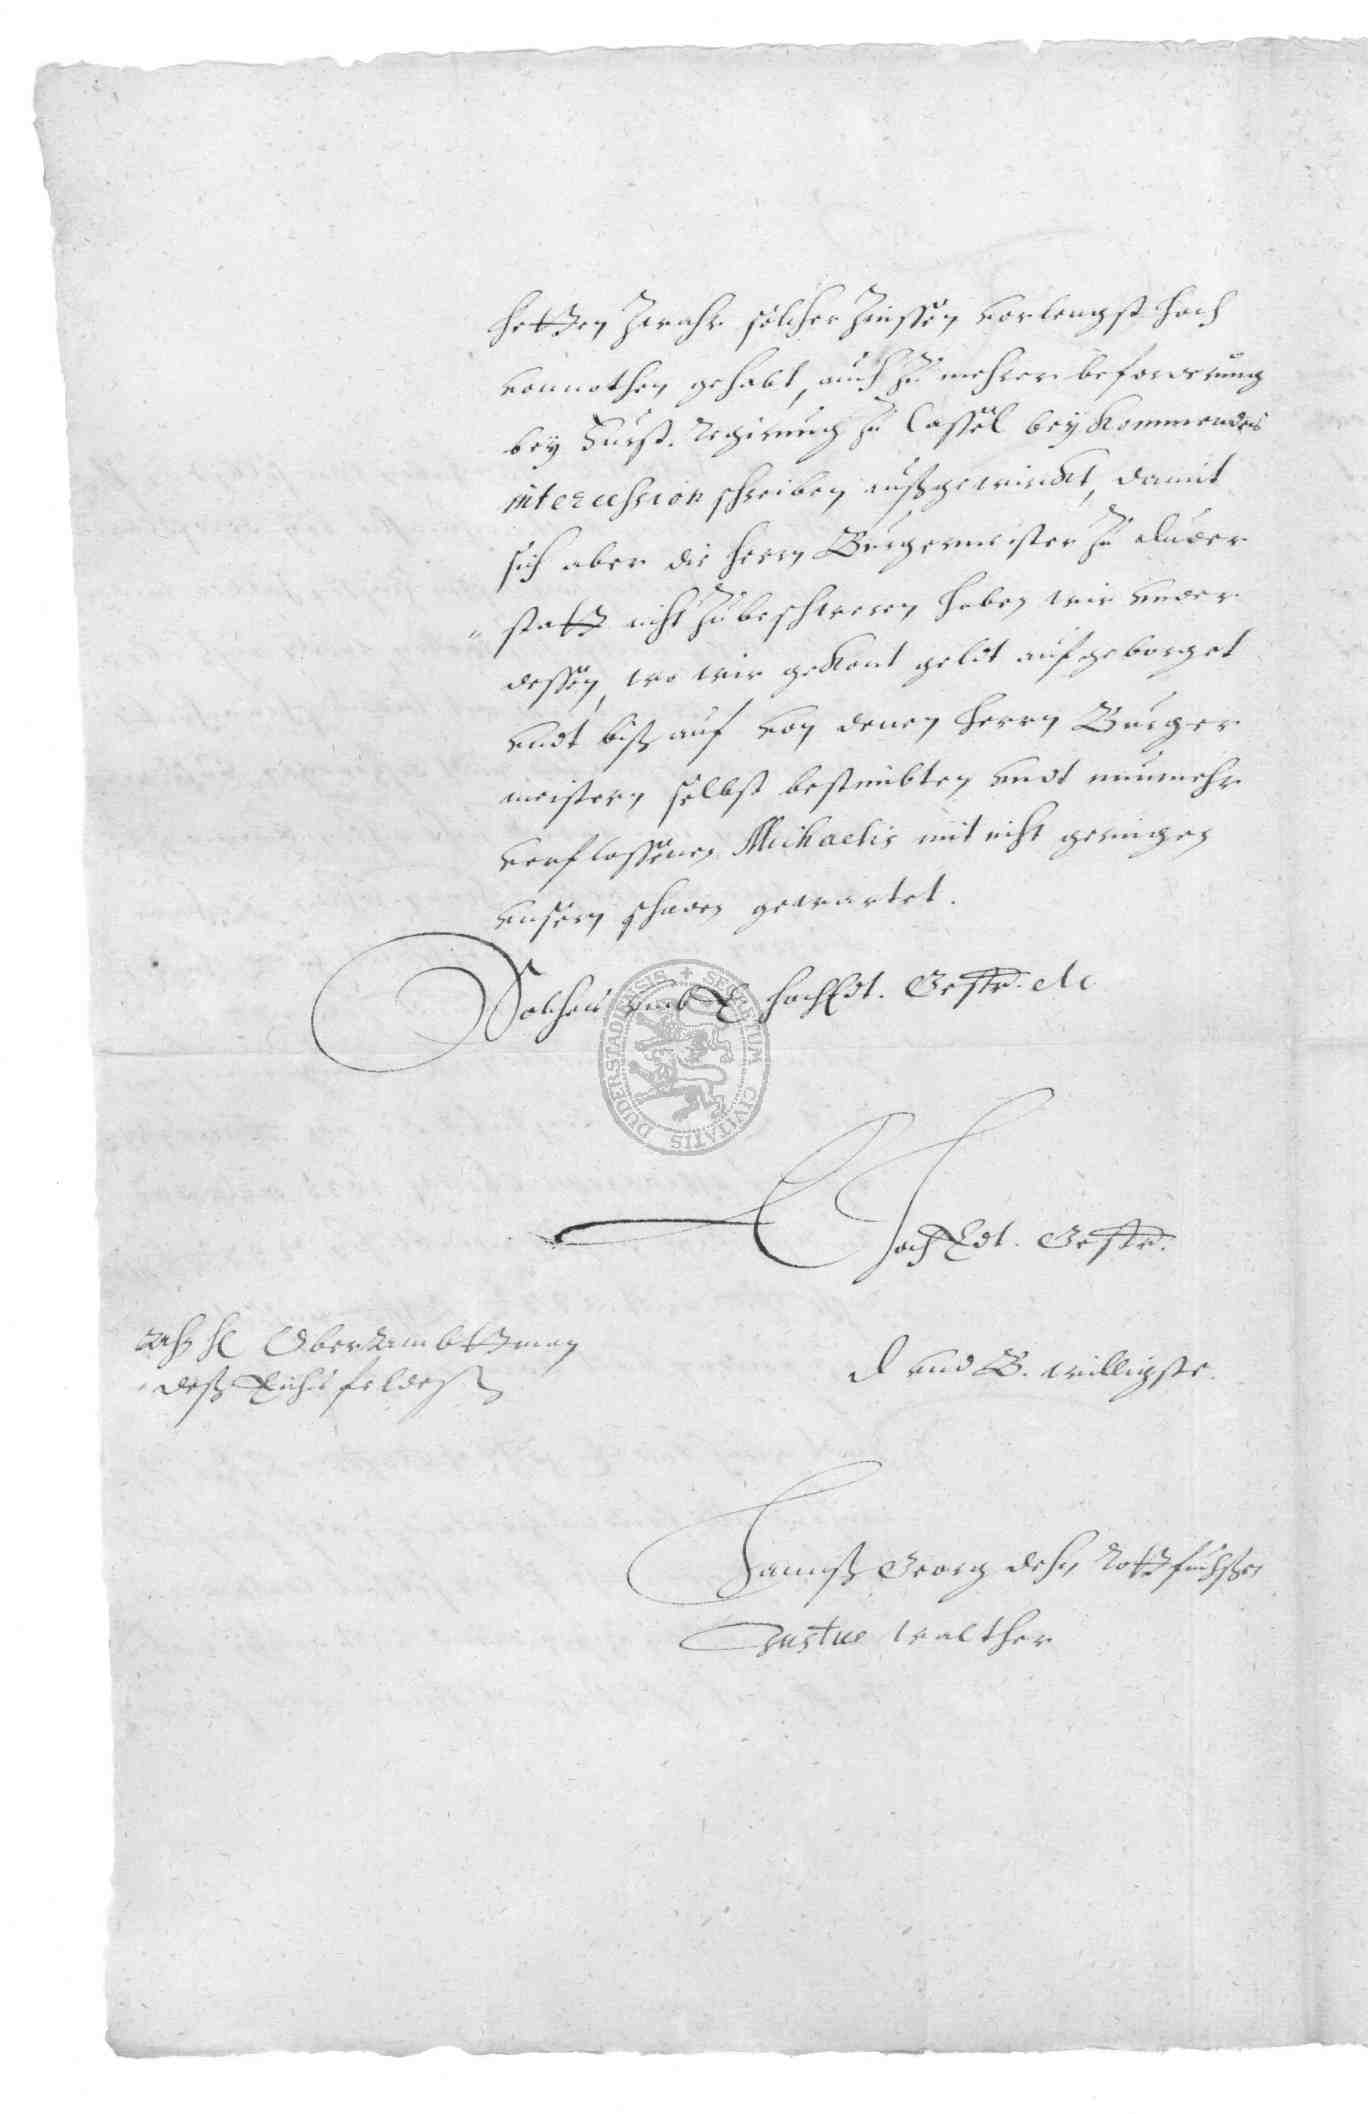 hetten zwahr solcher Zinssen vorlengst hoch
vonnothen gehabt, auch zu mehrer beforderung
bey Furst. Regirung zu Cassel bey kommendes
intercession schreiben außgewirckt, damit
sich aber die herrn Burgermeister zu Duder
statt nicht zubeschweren haben wir under
dessen, wo wir gekont geldt aufgeborget
undt biß auf von denen herrn Burger
meistern selbst bestimbten undt nunmehr
verflossenen Michaelis mit nicht geringen
unsern schaden gewartet.
Solches umb E hochEdl. Gestr. etc
SECRETUM CIVITATIS DUDERSTADIENSIS
E hochEdl. Gestr.
Ahn H Oberambttman
deß Eichsfeldeß
D und B. willigste.
Hannß Georg Dehn Rottfelser
Justus Walther